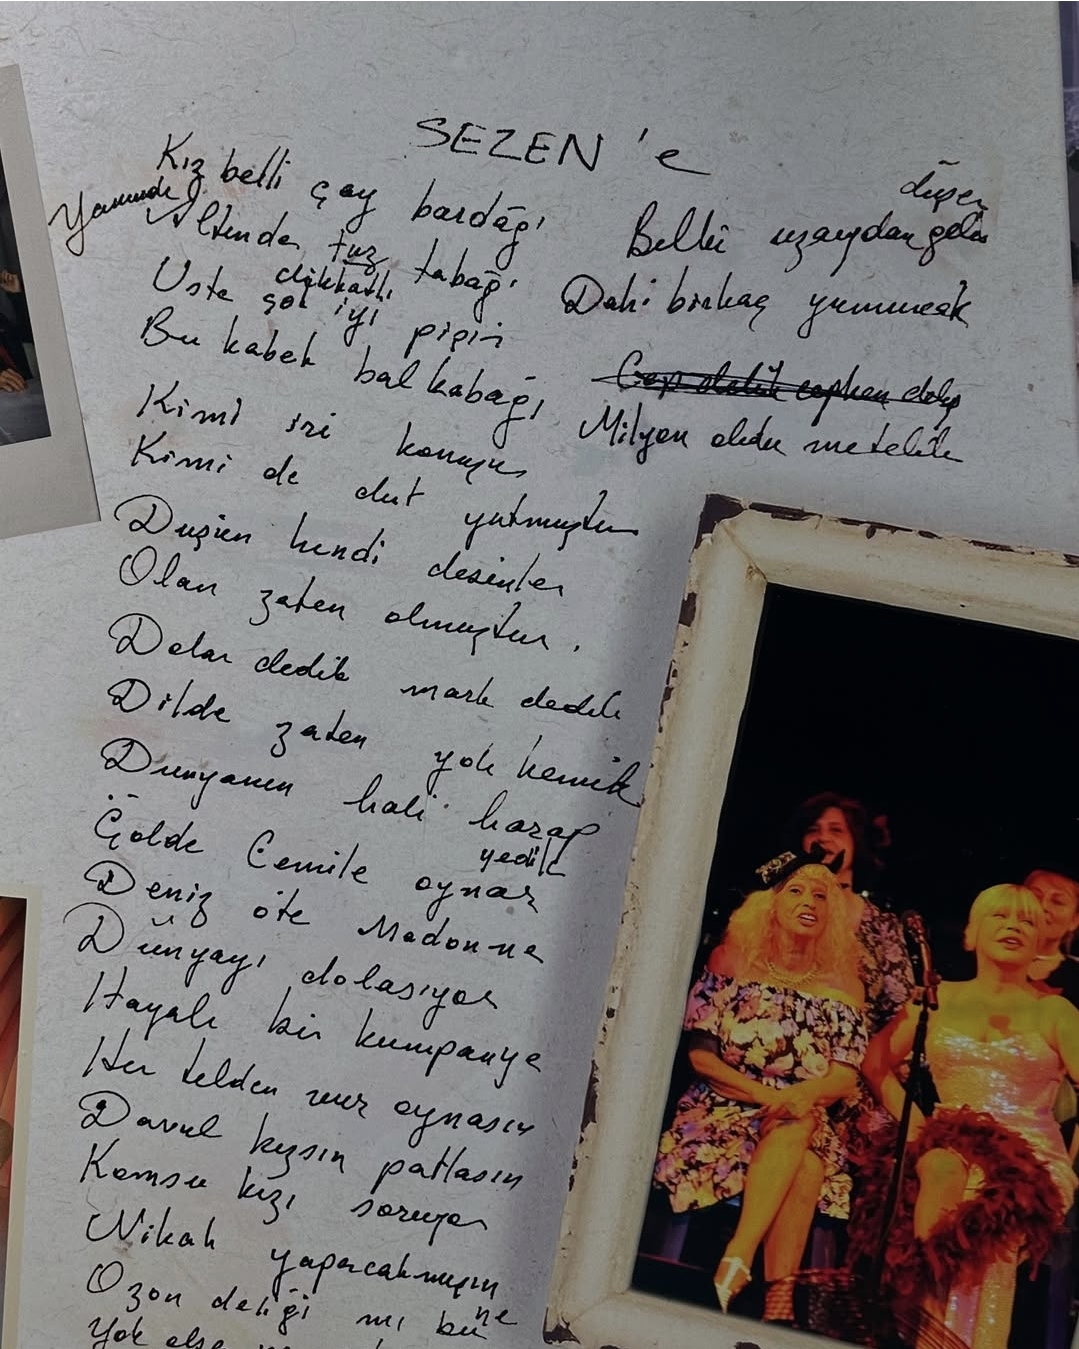 SEZEN'e
Kız belli çay bardağı
Yanında
Altında tuz tabağı
dikkatli
Usta çok iyi pişir
Bu kabak bal kabağı
Kimi iri konuşur
Kimi de dut yutmuştur
Duşien hendi desinler
Olan zaten olmuştur.
Dolar dedik mark dedik
Dilde zaten yok kemik
Dunyanın hali harap
yedik
Çölde Cemile oynar
Deniz öte Madonna
Dünyayı dolasıyor
Hayali bir kumpanya
Her telden vur oynasın
Davul kızsın patlasın
Komsu kızı soruyor
Nikah yapacakmışın
Ozon deliği mi bu ne
Yok olsa
düşen
Belki uzaydan gelir
Daha birkaç yumurcak
Cep delik cepken delip
Milyon oldu metelik